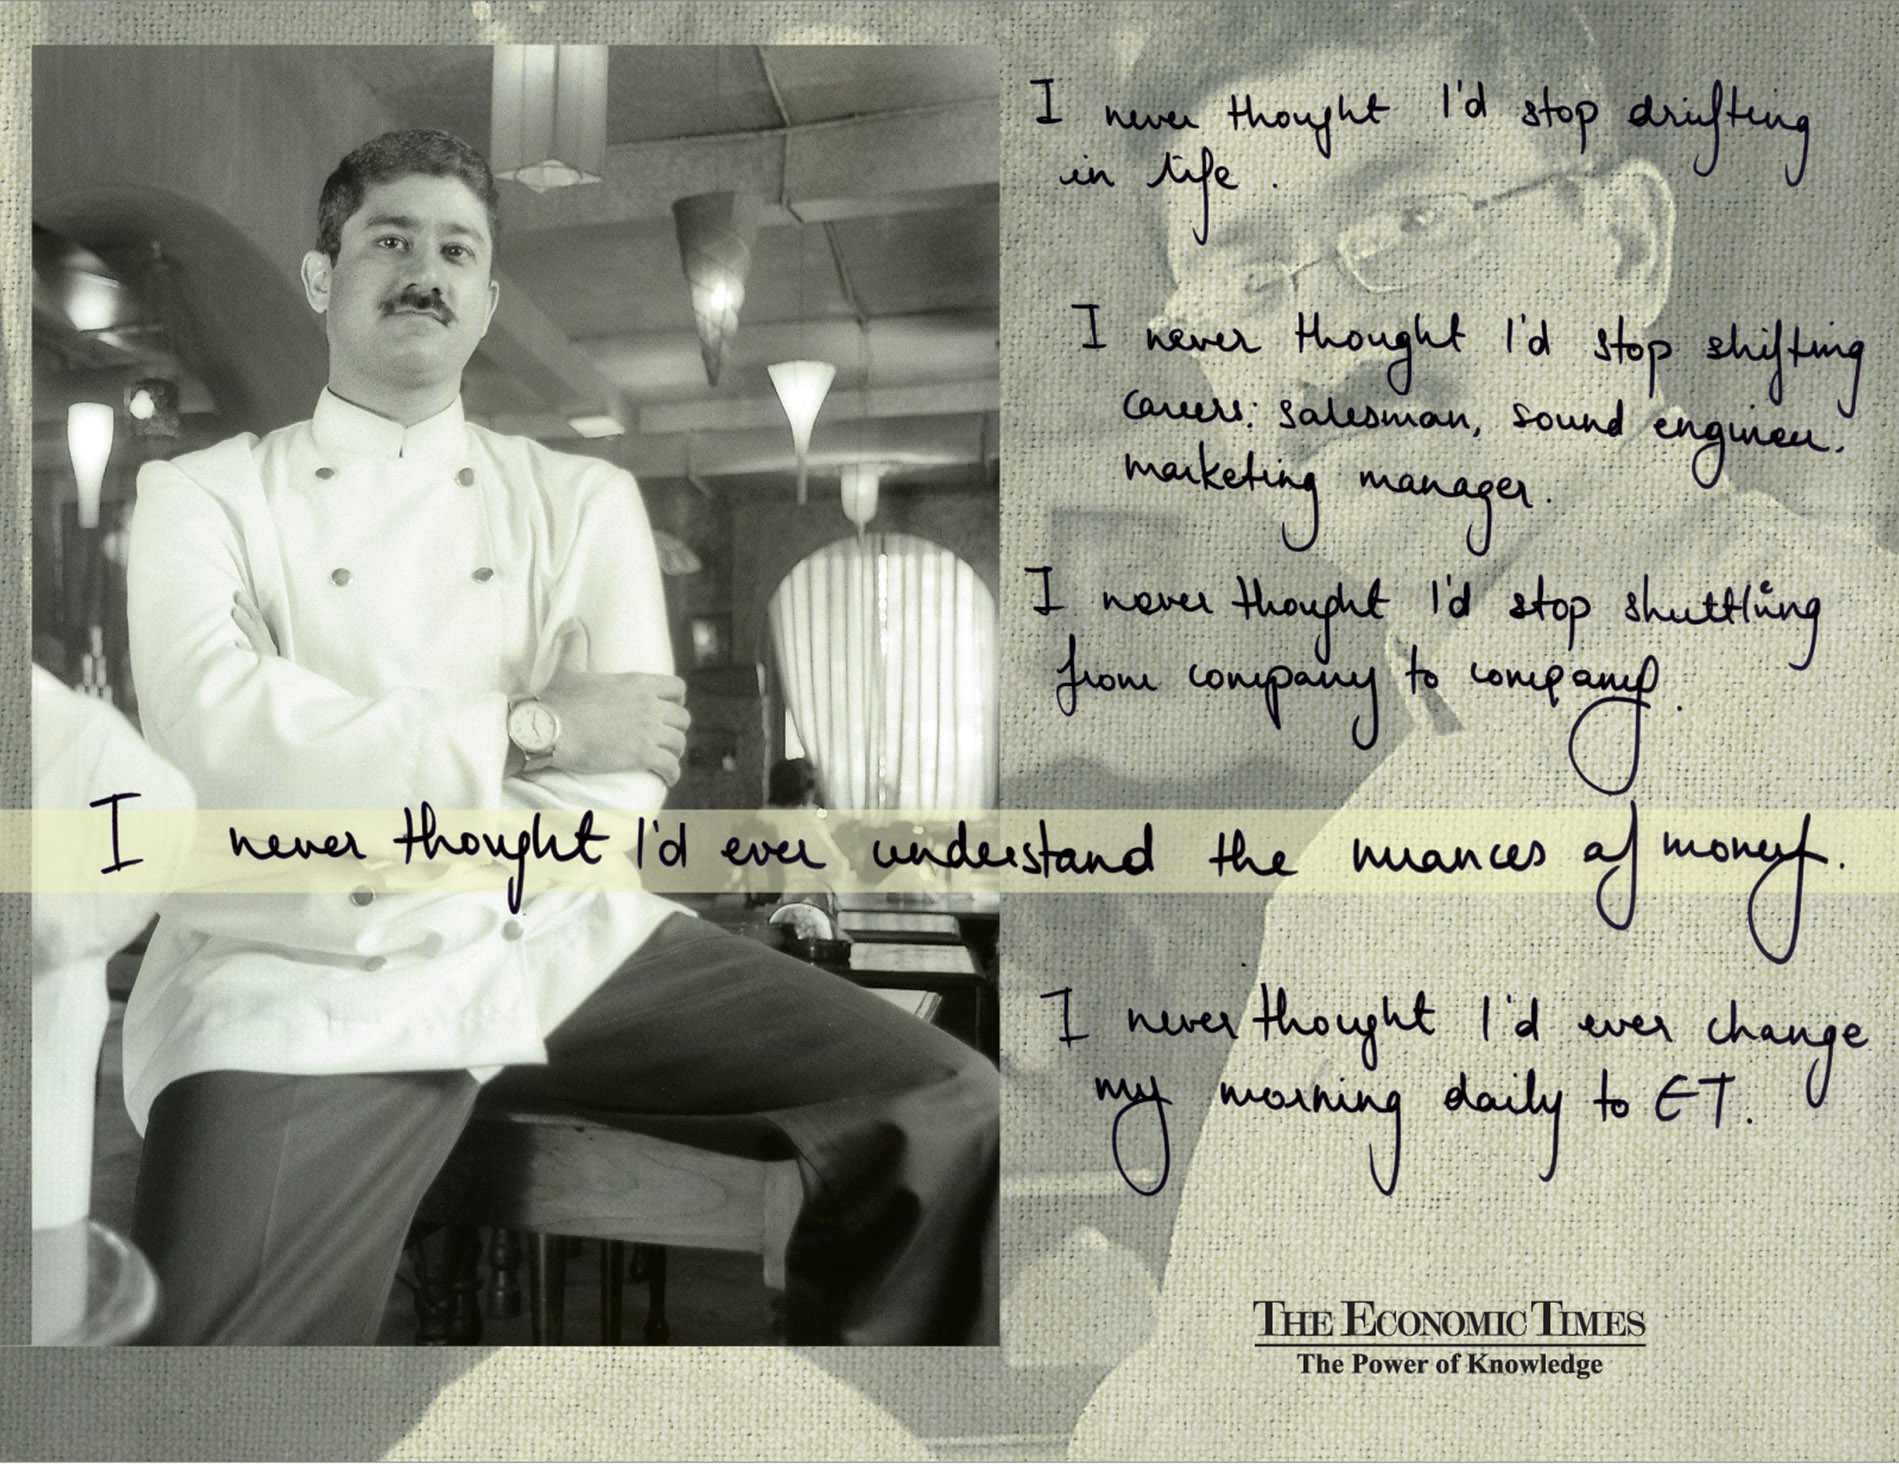 I never thought I'd stop drifting
in life.
I never thought I'd stop shifting
careers: salesman, sound engineer.
marketing manager.
I never thought I'd stop shuttling
from company to company.
I never thought I'd ever understand the nuances of money.
I never thought I'd ever change
my morning daily to ET.
THE ECONOMIC TIMES
The Power of Knowledge